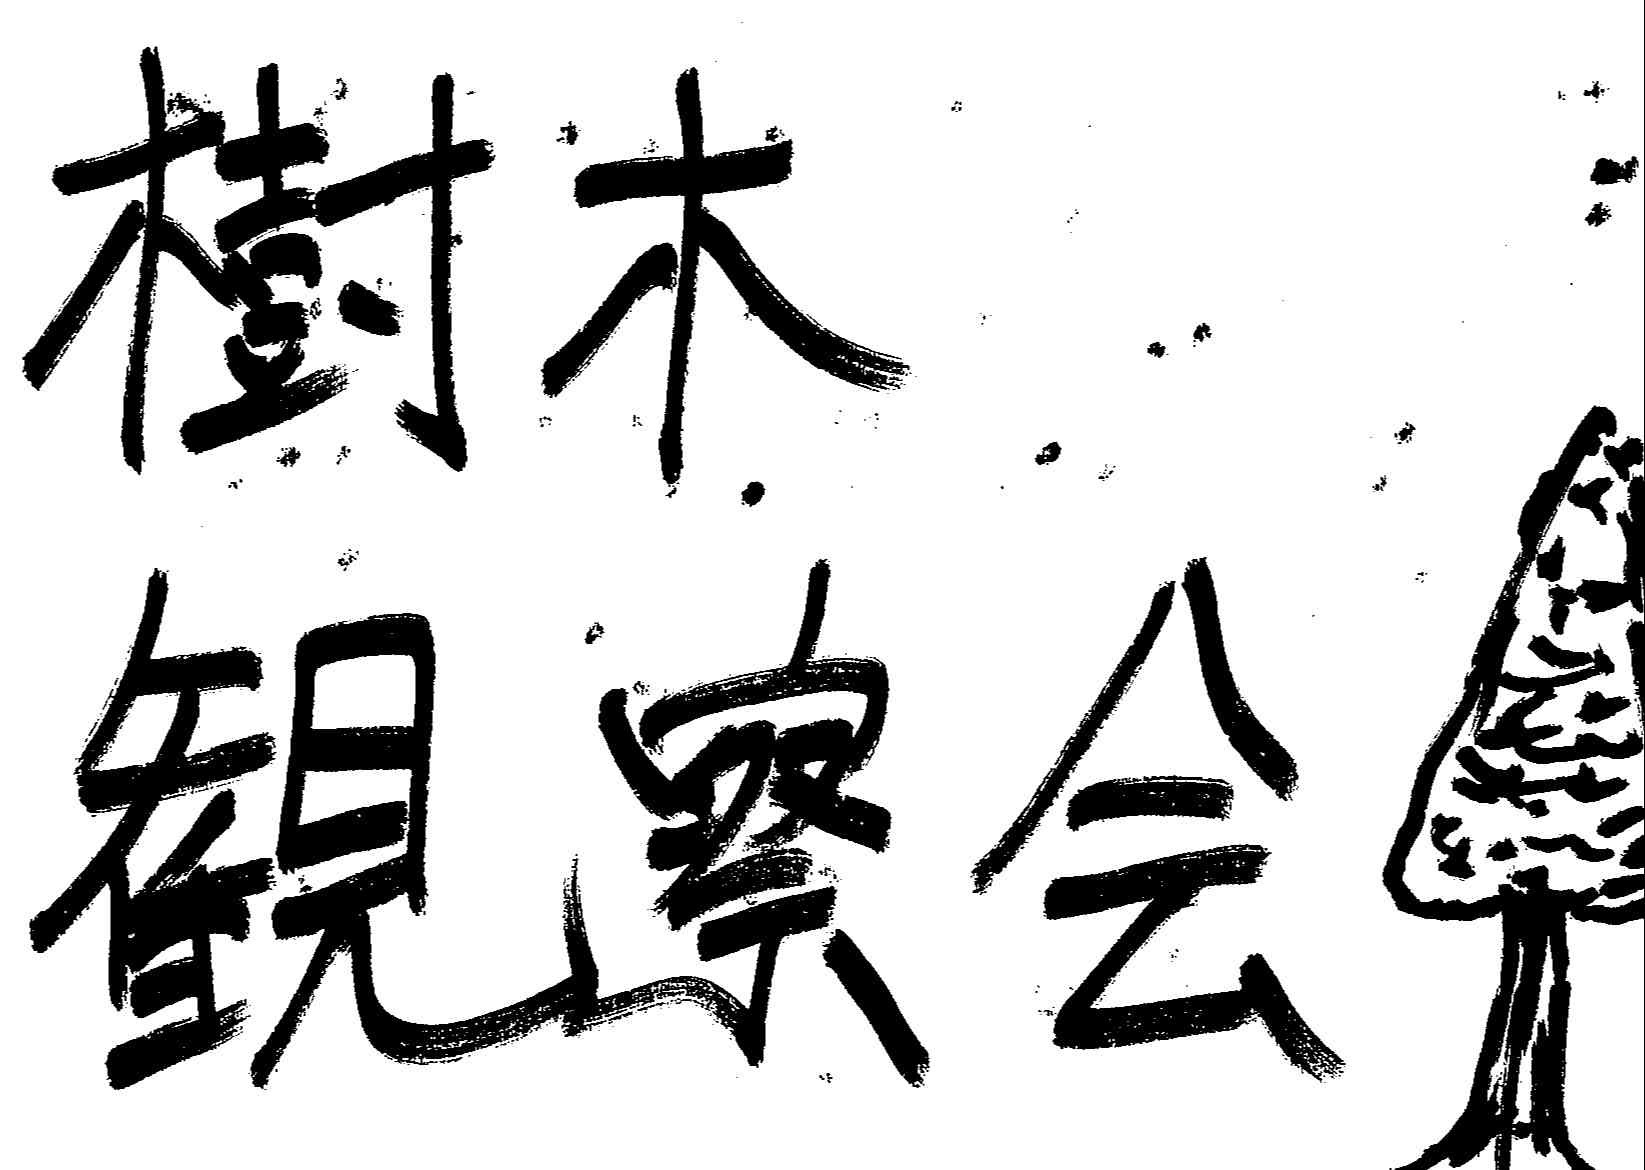 樹木
観察会